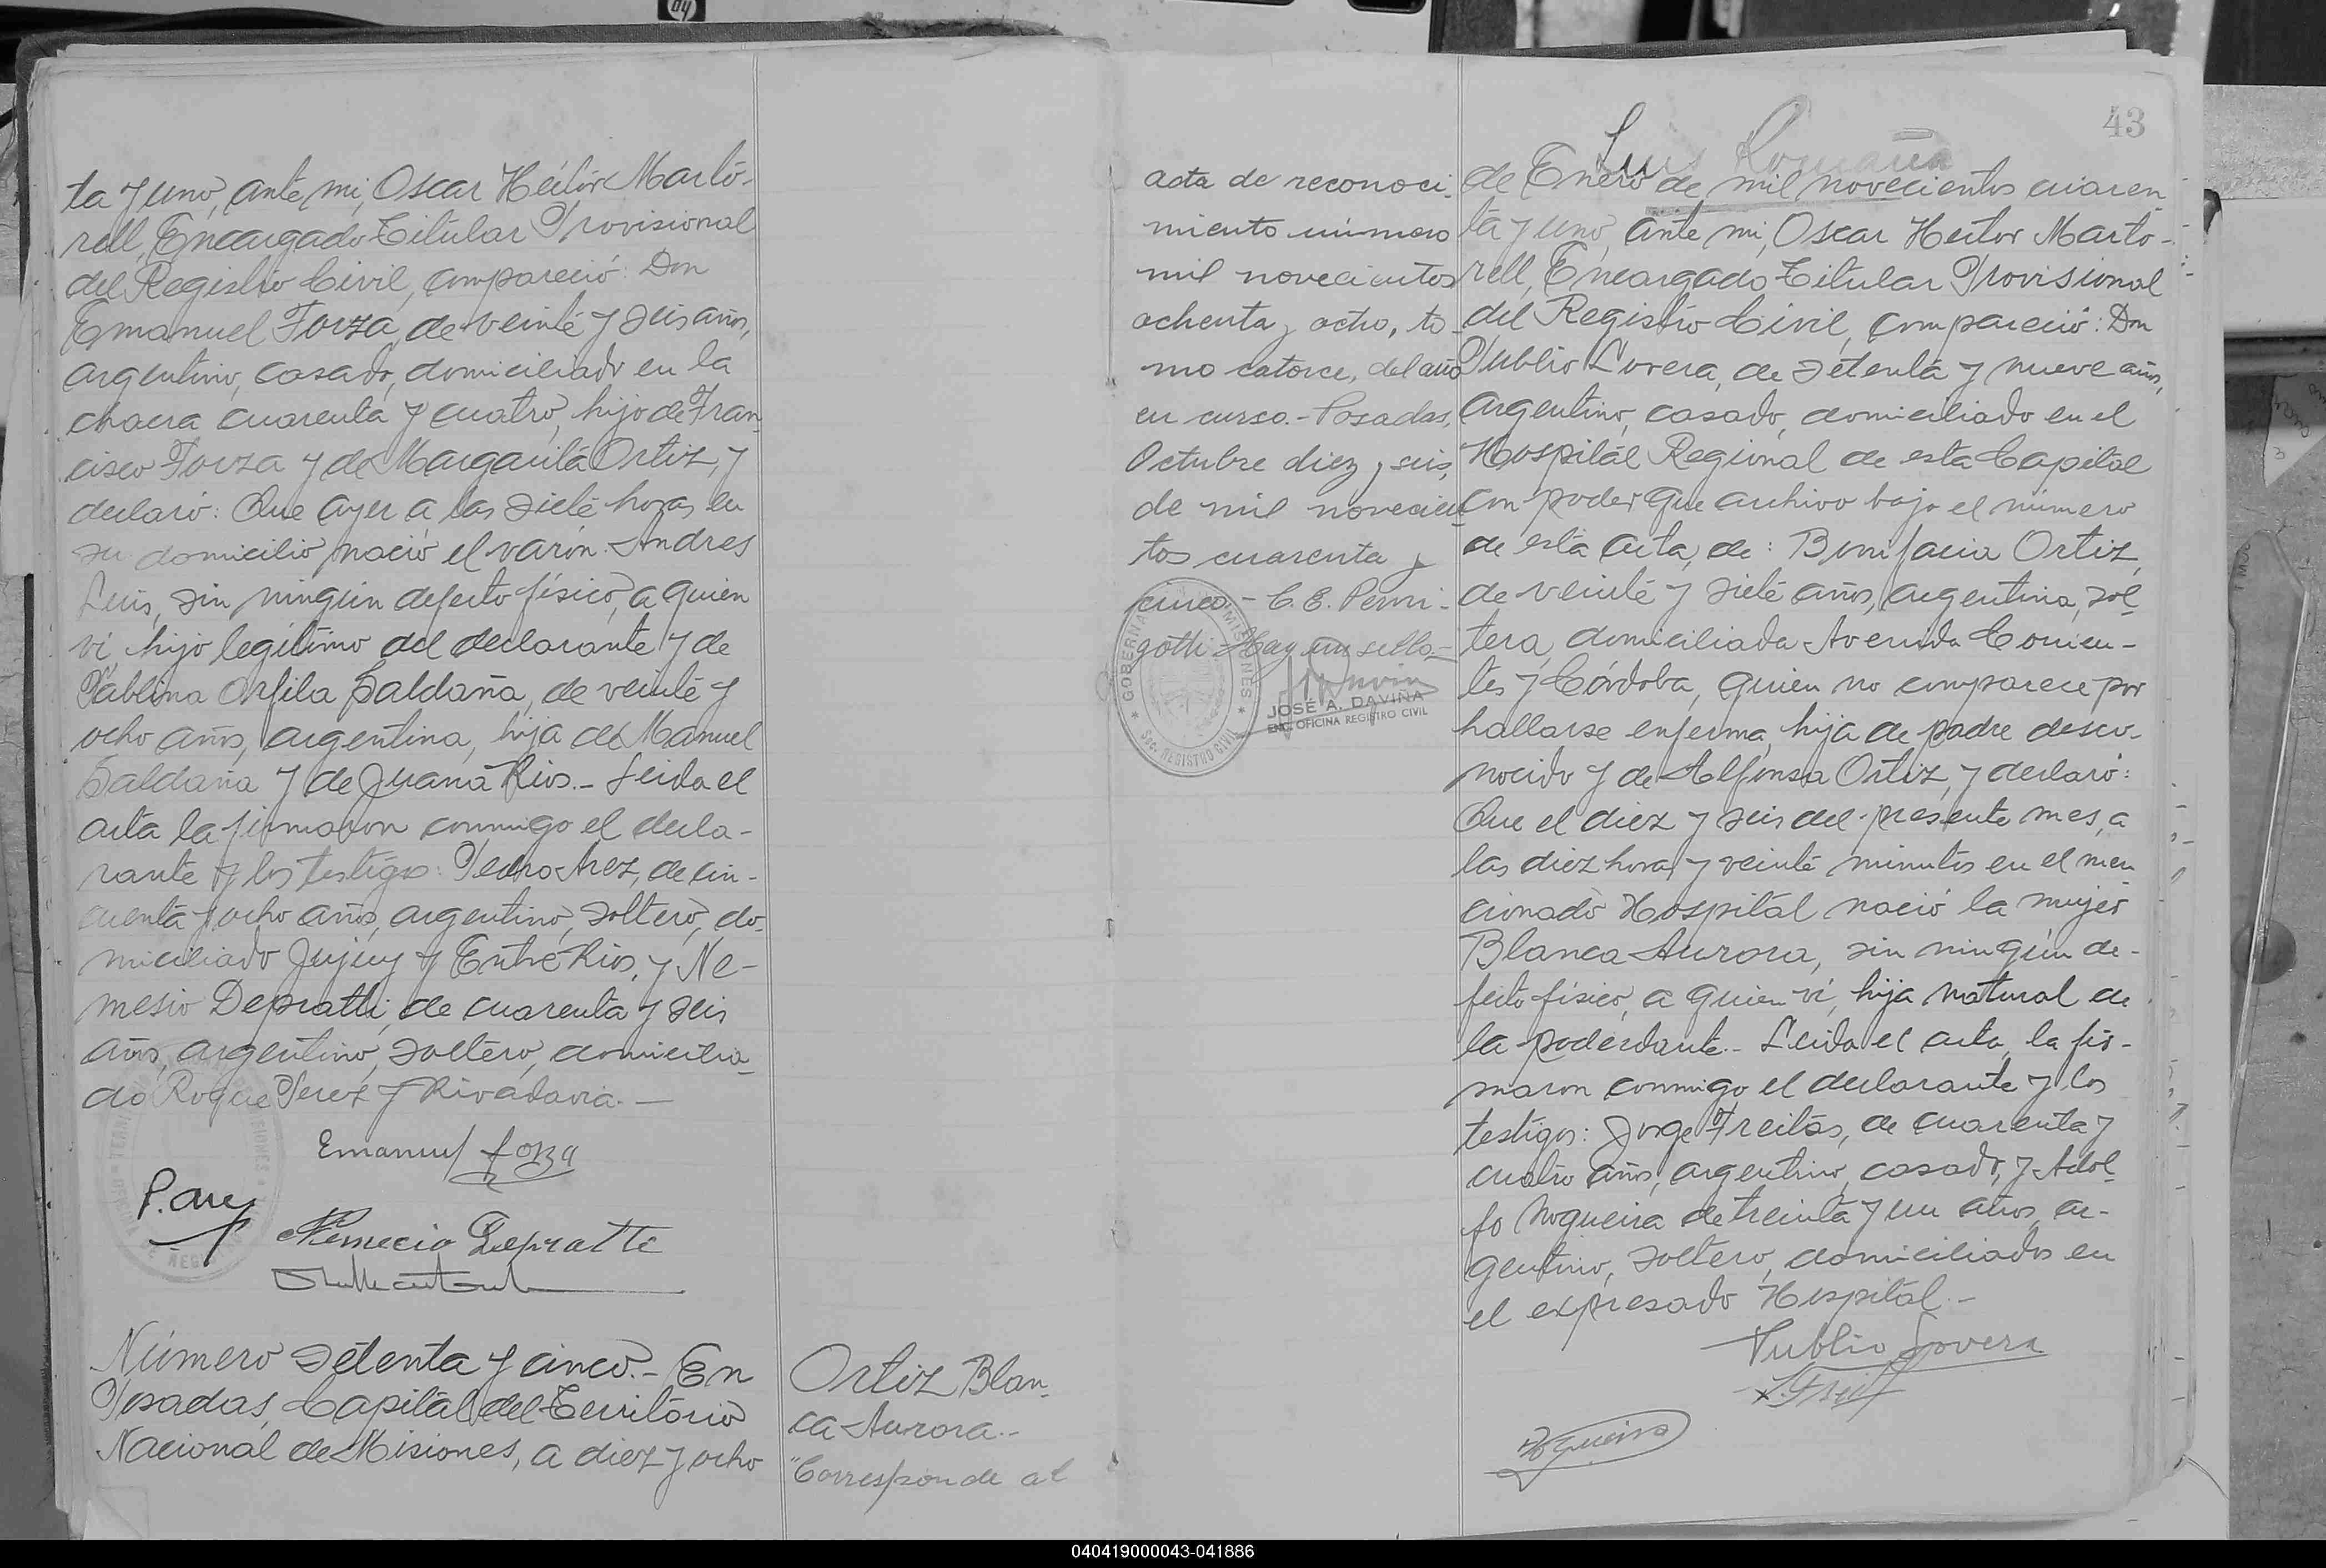 ta y uno, ante mi, Oscar Héctor Marto-
rell, Encargado Titular Provisional
del Registro Civil, compareció: Don
Emanuel Forza, de veinte y seis años,
argentino, casado, domiciliado en la
chacra cuarenta y cuatro, hijo de Fran
cisco Forza y de Margarita Ortiz, y
declaró: Que ayer a las siete horas en
su domicilio nació el varón Andres
Luis, sin ningún defecto físico, a quien
ví, hijo legítimo del declarante y de
Pablina Orfila Saldaña, de veinte y
ocho años, argentina, hija de Manuel
Saldaña y de Juana Rios.- Leida el
acta la firmaron conmigo el decla-
rante y los testigos: Pedro Arez, de cin-
cuenta y ocho años, argentino, soltero, do-
miciliado Jujuy y Entre Rios, y Ne-
mesio Depratti, de cuarenta y seis
años, argentino, soltero, domicilia-
do Roque Perez y Rivadavia.-
Emanuel forza
P. Arez
Nemecio Depratti
Número setenta y cinco.- En
Posadas, Capital del Territorio
Nacional de Misiones, a diez y ocho
Ortiz Blan-
ca Aurora.-
"Corresponde al
acta de reconoci-
miento número
mil novecientos
ochenta y ocho, to-
mo catorce, del año
en curso.- Posadas,
Octubre diez y seis,
de mil novecien
tos cuarenta y
cinco.- C. E. Perni-
gotti Hay un sello.-
GOBERNA MISIONES
REGISTRO CIVIL
JOSÉ A. DAVIÑA
ENC. OFICINA REGISTRO CIVIL
43
Luis Romaña
de Enero de mil novecientos cuaren
ta y uno, ante mi, Oscar Hector Marto-
rell, Encargado Titular Provisional
del Registro Civil, compareció: Don
Publio Lovera, de setenta y nueve años,
argentino, casado, domiciliado en el
Hospital Regional de esta Capital
con poder que archivo bajo el número
de esta acta, de: Bonifacia Ortiz,
de veinte y siete años, argentina, sol-
tera, domiciliada Avenida Corrien-
tes y Córdoba, quien no comparece por
hallarse enferma, hija de padre desco-
nocido y de Alfonsa Ortiz, y declaró:
Que el diez y seis del presente mes, a
las diez horas y veinte minutos en el men
cionado Hospital nació la mujer
Blanca Aurora, sin ningún de-
fecto físico, a quien ví, hija natural de
la poderdante.- Leida el acta, la fir-
maron conmigo el declarante y los
testigos: Jorge Freitas, de cuarenta y
cuatro años, argentino, casado, y Adol-
fo Nogueira de treinta y un años, ar-
gentino, soltero, domiciliados en
el expresado Hospital.-
Publio Lovera
040419000043-041886